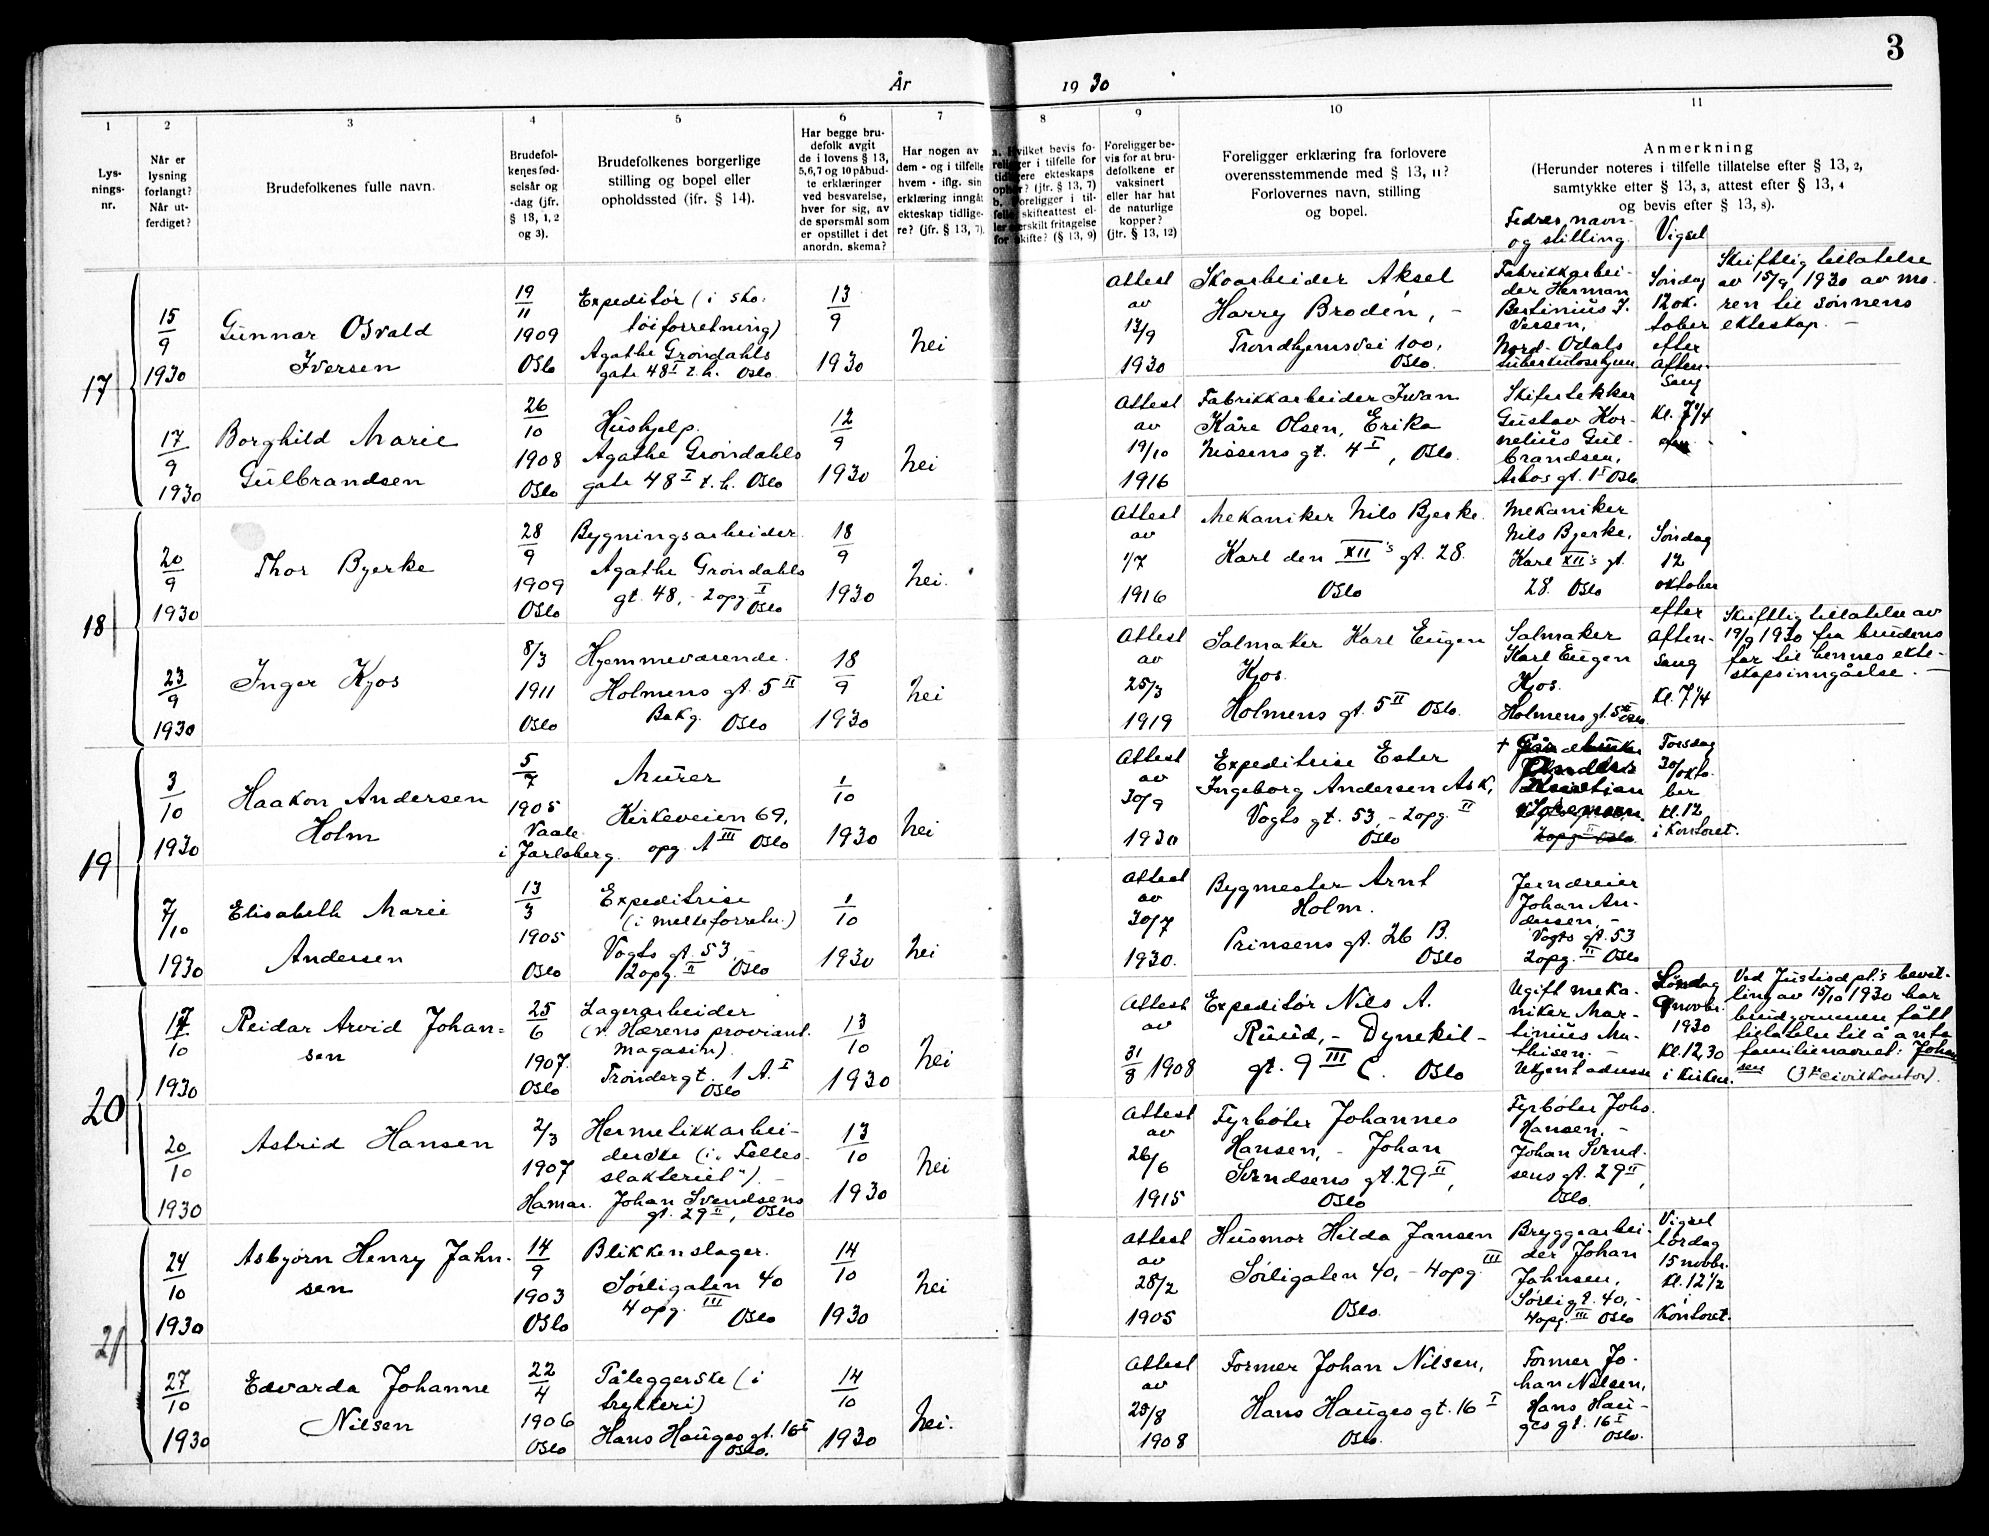 3
År 1930
1
2
3
4
5
6
7
8
9
10
11
Lys-
nings-
nr.
Når er
lysning
forlangt?
Når ut-
ferdiget?
Brudefolkenes fulle navn.
Brudefol-
kenes fød-
selsår og
-dag (jfr.
§ 13, 1, 2
og 3).
Brudefolkenes borgerlige
stilling og bopel eller
opholdssted (ifr. § 14).
Har begge bru-
defolk avgit
de i lovens § 13,
5,6,7 og 10 påbud-
te erklæringer
ved besvarelse,
hver for sig, av
de spørsmål som
er opstillet i det
anordn. skema?
Har nogen av
dem - og i tilfelle
hvem - iflg. sin
erklæring inngått
ekteskap tidlige-
re? (jfr. § 13, 7).
a. Hvilket bevis fo-
religger i tilfelle for
tidligere ekteskaps
ophør? (jfr. § 13, 7)
b. Foreligger i til-
felle skifteattest el-
ler særskilt fritagelse
for skifte? (§ 13, 9)
Foreligger be-
vis for at bru-
defolkene er
vaksinert
eller har hatt
de naturlige
kopper?
(jfr. § 13, 12)
Foreligger erklæring fra forlovere
overensstemmende med § 13, 11?
Forlovernes navn, stilling
og bopel.
Anmerkning
(Herunder noteres i tilfelle tillatelse efter § 13, 2,
samtykke efter § 13, 3, attest efter § 13, 4
og bevis efter § 13, 8).
Fedres navn
og stilling.
Vigsel
17
15/9
1930
Gunnar Osvald
Iversen
19/11
1909
Oslo
Expeditør (i sko-
tøiforretning)
Agathe Grøndahls
gate 48 I t.h. Oslo
13/9
1930
Nei
Attest
av
13/9
1930
Skoarbeider Aksel
Harry Brodén, -
Trondhjemsvei 100,
Oslo.
Fabrikkarbei-
der Herman
Bertinius I-
versen,
Nord-Odals
tuberkulosehjem
Søndag
12 ok-
tober
efter
aften-
sang
Kl. 7 1/4
Skriftlig tillatelse
av 15/9 1930 av mo-
ren til sønnens
ekteskap. -
17/9
1930
Borghild Marie
Gulbrandsen
26/10
1908
Oslo
Hushjelp.
Agathe Grøndahls
gate 48 I t.h. Oslo
12/9
1930
Nei
Attest
av
19/10
1916
Fabrikkarbeider Iwan
Kåre Olsen, Erika
Nissens gt. 4 I, Oslo.
Skifertekker
Gustav Kor-
nelius Gul-
brandsen,
Asbos gt. 1 I Oslo
18
20/9
1930
Thor Bjerke
28/9
1909
Oslo
Bygningsarbeider.
Agathe Grøndahls
gt. 48, - 2 opg. I
Oslo
18/9
1930
Nei.
Attest
av
1/7
1916
Mekaniker Nils Bjerke.
Karl den XII's gt. 28.
Oslo
Mekaniker
Nils Bjerke,
Karl XII's gt.
28. Oslo
Søndag
12
oktober
efter
aften-
sang
Kl. 7 1/4
23/9
1930
Inger Kjos
8/3
1911
Oslo
Hjemmeværende.
Holmens gt. 5 II
Bakg. Oslo
18/9
1930
Nei
Attest
av
25/3
1919
Salmaker Karl Eugen
Kjos.
Holmens gt. 5 II Oslo.
Salmaker
Karl Eugen
Kjos.
Holmens gt. 5 II Oslo.
Skriftlig tillatelse av
19/9 1930 fra brudens
far til hennes ekte-
skapsinngåelse. -
19
3/10
1930
Haakon Andersen
Holm
5/7
1905
Vaale
i Jarlsberg.
Murer
Kirkeveien 69,
opg. A III Oslo
1/10
1930
Nei
Attest
av
30/9
1930
Expeditrise Ester
Ingeborg Andersen Ask,
Vogts gt. 53, - 2 opg. II
Oslo
+ Gårdbruker
2 opg. II Oslo
Torsdag
30/okto-
ber
kl. 12
i Kontoret.
7/10
1930
Elisabeth Marie
Andersen
13/3
1905
Oslo
Expeditrise
(i melkeforretn.)
Vogts gt. 53 -
2 opg. II Oslo
1/10
1930
Nei
Attest
av
30/7
1930.
Bygmester Arnt
Holm.
Prinsens gt. 26 B.
Oslo
Jerndreier
Johan An-
dersen, -
Vogts gt. 53
2 opg. II Oslo
20
17/10
1930
Reidar Arvid Johan-
sen
25/6
1907.
Oslo
Lagerarbeider
(v. Hærens proviant-
magasin).
Trøndergt. 1 A. I
Oslo
13/10
1930
Nei
Attest
av
31/8 1908
Expeditør Nils A.
Ruud, - Dynekil-
gt. 9 III C. Oslo
Ugift meka-
niker Mar-
tinius Ma-
thisen. -
Ukjent adresse
Søndag
9 novbr.
1930
Kl. 12,30
i kirken.
Ved Justisdpt.'s bevil-
ling av 15/10 1930 har
brudgommen fått
tillatelse til å anta
familienavnet: Johan-
sen (3dje civilkontor).
20/10
1930
Astrid Hansen
2/3
1907
Hamar.
Hermetikkarbei-
derske (i "Felles-
slakteriet"). -
Johan Svendsens
gt. 29 II, Oslo
13/10
1930
Nei
Attest
av
26/6
1915
Fyrbøter Johannes
Hansen, - Johan
Svendsens gt. 29 II,
Oslo
Fyrbøter Johs.
Hansen, -
Johan Svend-
sens gt. 29 II,
Oslo.
21
24/10
1930
Asbjørn Henry Jahn-
sen
14/9
1903
Oslo
Blikkenslager.
Sørligaten 40
4 opg. III Oslo
14/10
1930
Nei
Attest
av
28/2
1905
Husmor Hilda Jansen
Sørligaten 40, - 4 opg. III
Oslo.
Bryggearbei-
der Johan
Jahnsen,
Sørligt. 40, -
4 opg. III Oslo
Vigsel
lørdag
15 novbr.
Kl. 12 1/2
i
Kontoret.
27/10
1930
Edvarda Johanne
Nilsen
22/4
1906
Oslo
Påleggerske (i
trykkeri)
Hans Hauges gt. 16 I
Oslo.
14/10
1930
Nei.
Attest
av
28/8
1908
Former Johan Nilsen,
Hans Hauges gt. 16 I
Oslo.
Former Jo-
han Nilsen,
Hans Hau-
ges gt. 16 I
Oslo.